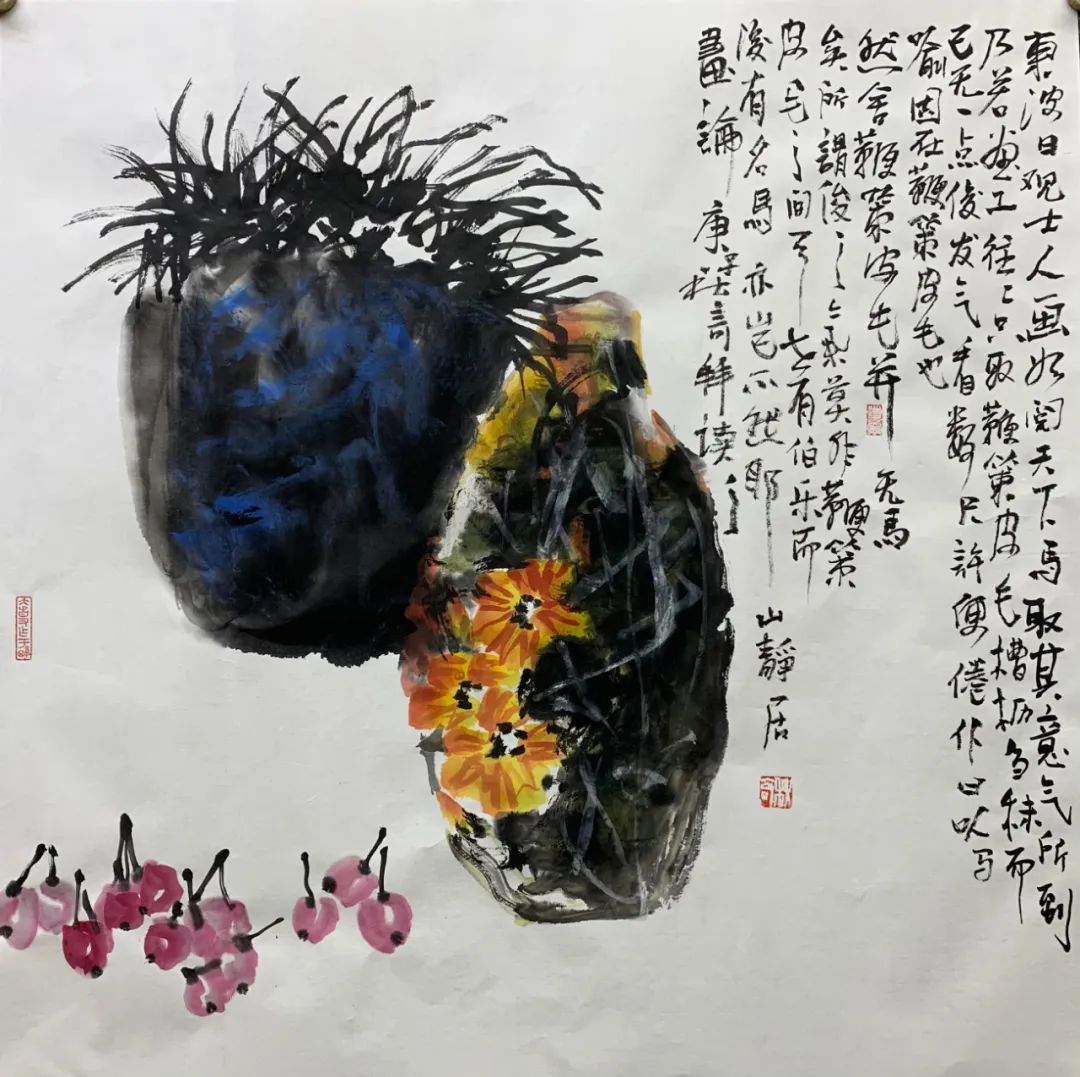 東波曰观士人画如阅天下马取其意气所到
乃若画工往往只取鞭策皮毛槽枥刍秣而
已无一点俊发气看数尺許便倦作曰以马
喻因在鞭策皮毛也
然舍鞭策皮毛并无馬
矣所謂俊之氣莫非鞭策
皮毛之間耳世有伯乐而
後有名馬亦岂不然耶山靜居
畫論 庚 拜读之